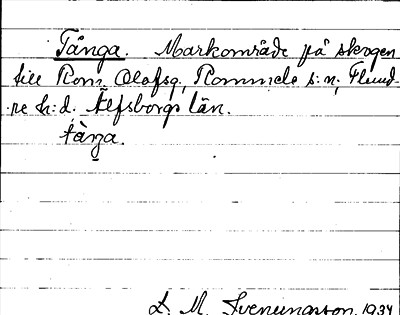 Tånga. Markområde på skogen
till Rom, Olofsg, Rommele s:n, Flund-
re h:d. Älfsborgs län.
tånga.
L. M. Svenungsson 1934